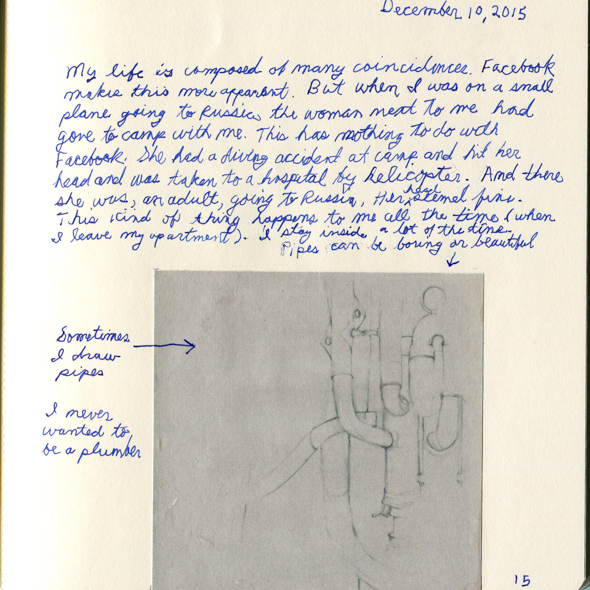 December 10, 2015
My life is composed of many coincidences. Facebook
makes this more apparent. But when I was on a small
plane going to Russia, the woman next to me had
gone to camp with me. This has nothing to do with
Facebook. She had a diving accident at camp and hit her
head and was taken to a hospital by helicopter. And there
she was, an adult, going to Russia, Her head seemed fine.
This kind of thing happens to me all the time (when
I leave my apartment). I stay inside a lot of the time.
Pipes can be boring or beautiful
Sometimes
I draw
pipes
I never
wanted to
be a plumber
15